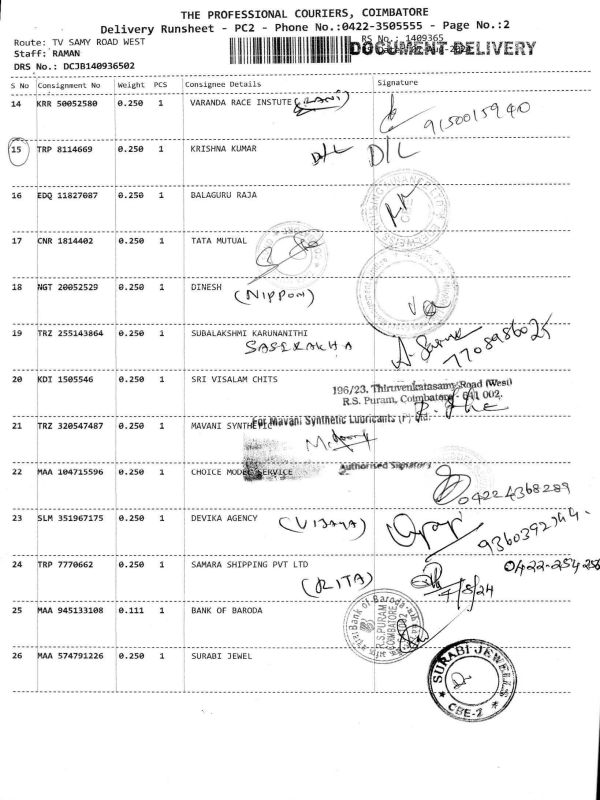 THE PROFESSIONAL COURIERS, COIMBATORE
Delivery Runsheet - PC2 - Phone No.:0422-3505555 - Page No.:2
Route: TV SAMY ROAD WEST
RS No.: 1409365
Staff: RAMAN
DOCUMENT DELIVERY
DRS No.: DCJB140936502
S No Consignment No Weight PCS Consignee Details Signature
14 KRR 50052580 0.250 1 VARANDA RACE INSTUTE (RANI)
9150015940
15 TRP 8114669 0.250 1 KRISHNA KUMAR D/L D/L
16 EDQ 11827087 0.250 1 BALAGURU RAJA
17 CNR 1814402 0.250 1 TATA MUTUAL
18 NGT 20052529 0.250 1 DINESH
(NIPPON)
19 TRZ 255143864 0.250 1 SUBALAKSHMI KARUNANITHI
SASIRAKHA
7708986025
20 KDI 1505546 0.250 1 SRI VISALAM CHITS
196/23, Thiruvenkatasamy Road (West)
R.S. Puram, Coimbatore - 641 002.
For Mavani Synthetic Lubricants (P) Ltd.
21 TRZ 320547487 0.250 1 MAVANI SYNTHETIC
Authorised Signatory
22 MAA 104715596 0.250 1 CHOICE MODEC SERVICE
04224368289
23 SLM 351967175 0.250 1 DEVIKA AGENCY (VIJAYA)
9360392744
24 TRP 7770662 0.250 1 SAMARA SHIPPING PVT LTD
0422-254256
(RITA)
7/8/24
25 MAA 945133108 0.111 1 BANK OF BARODA
Bank of Baroda
R.S.PURAM
COIMBATORE
26 MAA 574791226 0.250 1 SURABI JEWEL
SURABI JEWELLS
CBE-2